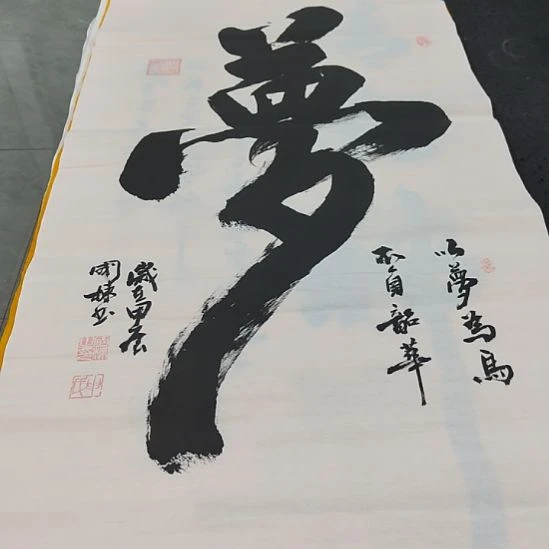 夢
以夢為馬
不負韶華
歲在甲辰
國棟书